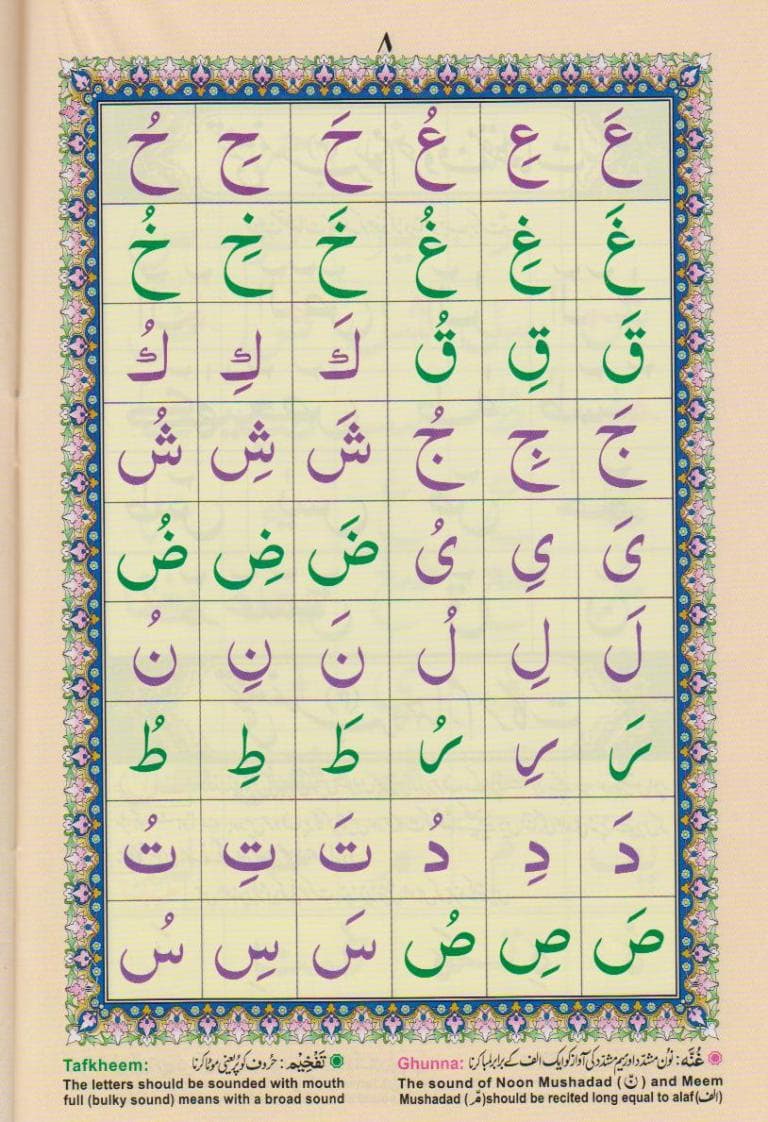 ٨
عَ عِ عُ حَ حِ حُ
غَ غِ غُ خَ خِ خُ
قَ قِ قُ كَ كِ كُ
جَ جِ جُ شَ شِ شُ
یَ یِ یُ ضَ ضِ ضُ
لَ لِ لُ نَ نِ نُ
رَ رِ رُ طَ طِ طُ
دَ دِ دُ تَ تِ تُ
صَ صِ صُ سَ سِ سُ
Ghunna: غُنَّه: نُون مشدّد اور میم مشدّد کی آواز کو ایک الف کے برابر لمبا کرنا
The sound of Noon Mushadad (نّ) and Meem
Mushadad (مّ) should be recited long equal to alaf (الف)
Tafkheem: تَفْخِیْم: حرُوف کو پُر یعنی موٹا کرنا
The letters should be sounded with mouth
full (bulky sound) means with a broad sound